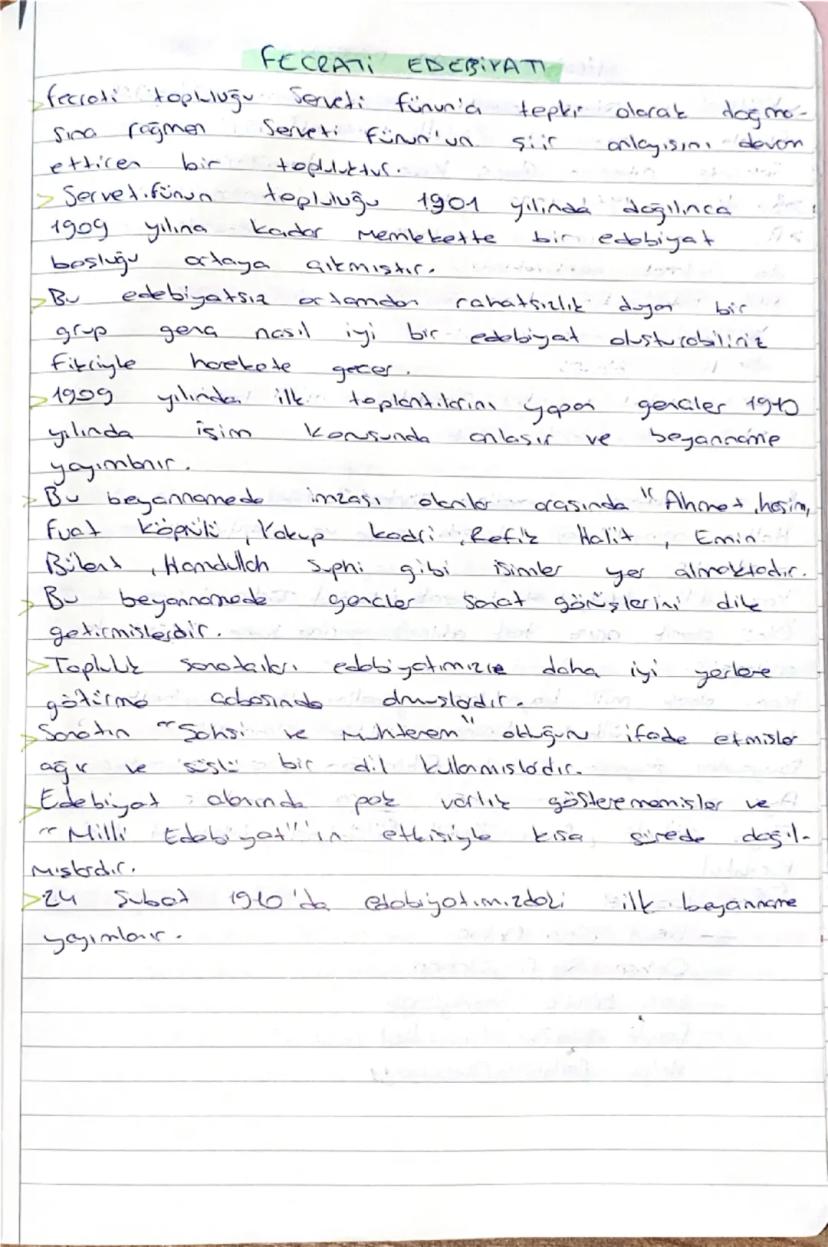 FECRATİ EDEBİYATI
> Fecrati topluluğu Serveti fünun'a tepki olarak doğma-
sına rağmen Serveti fünun'un şiir anlayışını devam
ettiren bir topluluktur.
> Servetifünun topluluğu 1901 yılında dağılınca
1909 yılına kadar memlekette bir edebiyat
boşluğu ortaya çıkmıştır.
> Bu edebiyatsız ortamdan rahatsızlık duyan bir
grup genç nasıl iyi bir edebiyat oluşturabiliriz
fikriyle harekete geçer.
> 1909 yılında ilk toplantılarını yapan gençler 1910
yılında isim konusunda anlaşır ve beyanname
yayımlanır.
> Bu beyannamede imzası olanlar arasında "Ahmet haşim,
Fuat köprülü, Yakup kadri, Refik Halit, Emin
Bülent, Hamdullah Suphi gibi isimler yer almaktadır.
> Bu beyannamede gençler sanat görüşlerini dile
getirmişlerdir.
> Topluluk sanatçıları edebiyatımızı daha iyi yerlere
götürme çabasında olmuşlardır.
> Sanatın "Şahsi ve Muhterem" olduğunu ifade etmişler
ağır ve süslü bir dil kullanmışlardır.
> Edebiyat alanında pek varlık gösterememişler ve
"Milli Edebiyat"ın etkisiyle kısa sürede dağıl-
mışlardır.
> 24 Şubat 1910'da edebiyatımızdaki ilk beyanname
yayımlanır.